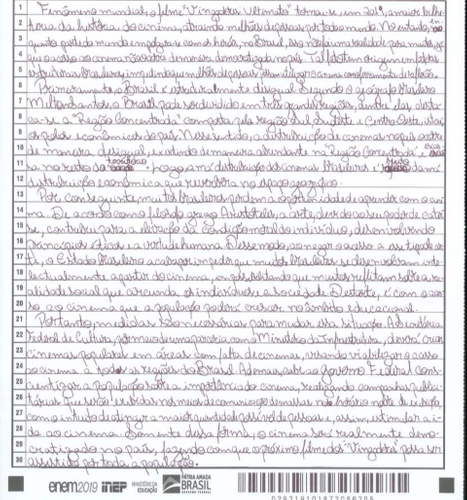 1 Fenômeno mundial, o filme "Vingadores Ultimato" tornou-se, em 2019, a maior bilhe-
2 teria da história do cinema, atraindo milhões de pessoas por todo o mundo. No entanto, en-
3 quanto parte do mundo
4 que o acesso ao cinema não ocorre de maneira democratizada no país. Tal fato tem origem em fatores
5 estruturais brasileiros, impedindo que milhões de pessoas
6 Primeiramente, o Brasil é estruturalmente desigual. Segundo o geógrafo brasileiro
7 Milton Santos, o Brasil pode ser dividido em três grandes regiões, dentre elas, desta-
8 ca-se a "Região Concentrada" composta pela região Sul, Sudeste e Centro Oeste,
9 os polos econômicos do país. Nesse sentido, a distribuição de cinemas no país ocorre
10 de maneira desigual, existindo de maneira abundante na "Região Concentrada" e
11 sa no resto do território, porque a má distribuição dos cinemas brasileiros é fruto da má
12 distribuição econômica que reverbera no espaço geográfico.
13 Por conseguinte, muitos brasileiros perdem a oportunidade de aprender com o cine-
14 ma. De acordo com o filósofo grego Aristóteles, a arte, devido ao seu poder de catar-
15 se, contribui para a elevação da condição moral do indivíduo, desenvolvendo
16 princípios éticos e a virtude humana. Desse modo, ao negar o acesso a esse tipo de ar-
17 te, o Estado Brasileiro acaba por impedir que muitos brasileiros se desenvolvam inte-
18 lectualmente a partir do cinema, impossibilitando que muitos reflitam sobre a re-
19 alidade social que circunda os indivíduos e a sociedade. Destarte, é com o aces-
20 so ao cinema que a população poderá crescer no âmbito educacional.
21 Portanto, medidas são necessárias para mudar essa situação. A Secretaria
22 Federal de Cultura, por meio de uma parceria com o Ministério da Infraestrutura, deverá criar
23 cinemas populares em áreas com falta de cinemas, visando viabilizar o acesso
24 ao cinema a todas as regiões do Brasil. Ademais, cabe ao Governo Federal cons-
25 cientizar a população sobre a importância do cinema, realizando campanhas publici-
26 tárias que serão exibidas nos meios de comunicação de massa no horário nobre da televisão,
27 com o intuito de atingir a maior quantidade possível de pessoas e, assim, estimular a i-
28 da ao cinema. Somente dessa forma, o cinema será realmente demo-
29 cratizado no país, fazendo com que o próximo filme do "Vingadores" possa ser
30 assistido por toda a população.
enem2019 INEP MINISTÉRIO DA EDUCAÇÃO PÁTRIA AMADA BRASIL GOVERNO FEDERAL